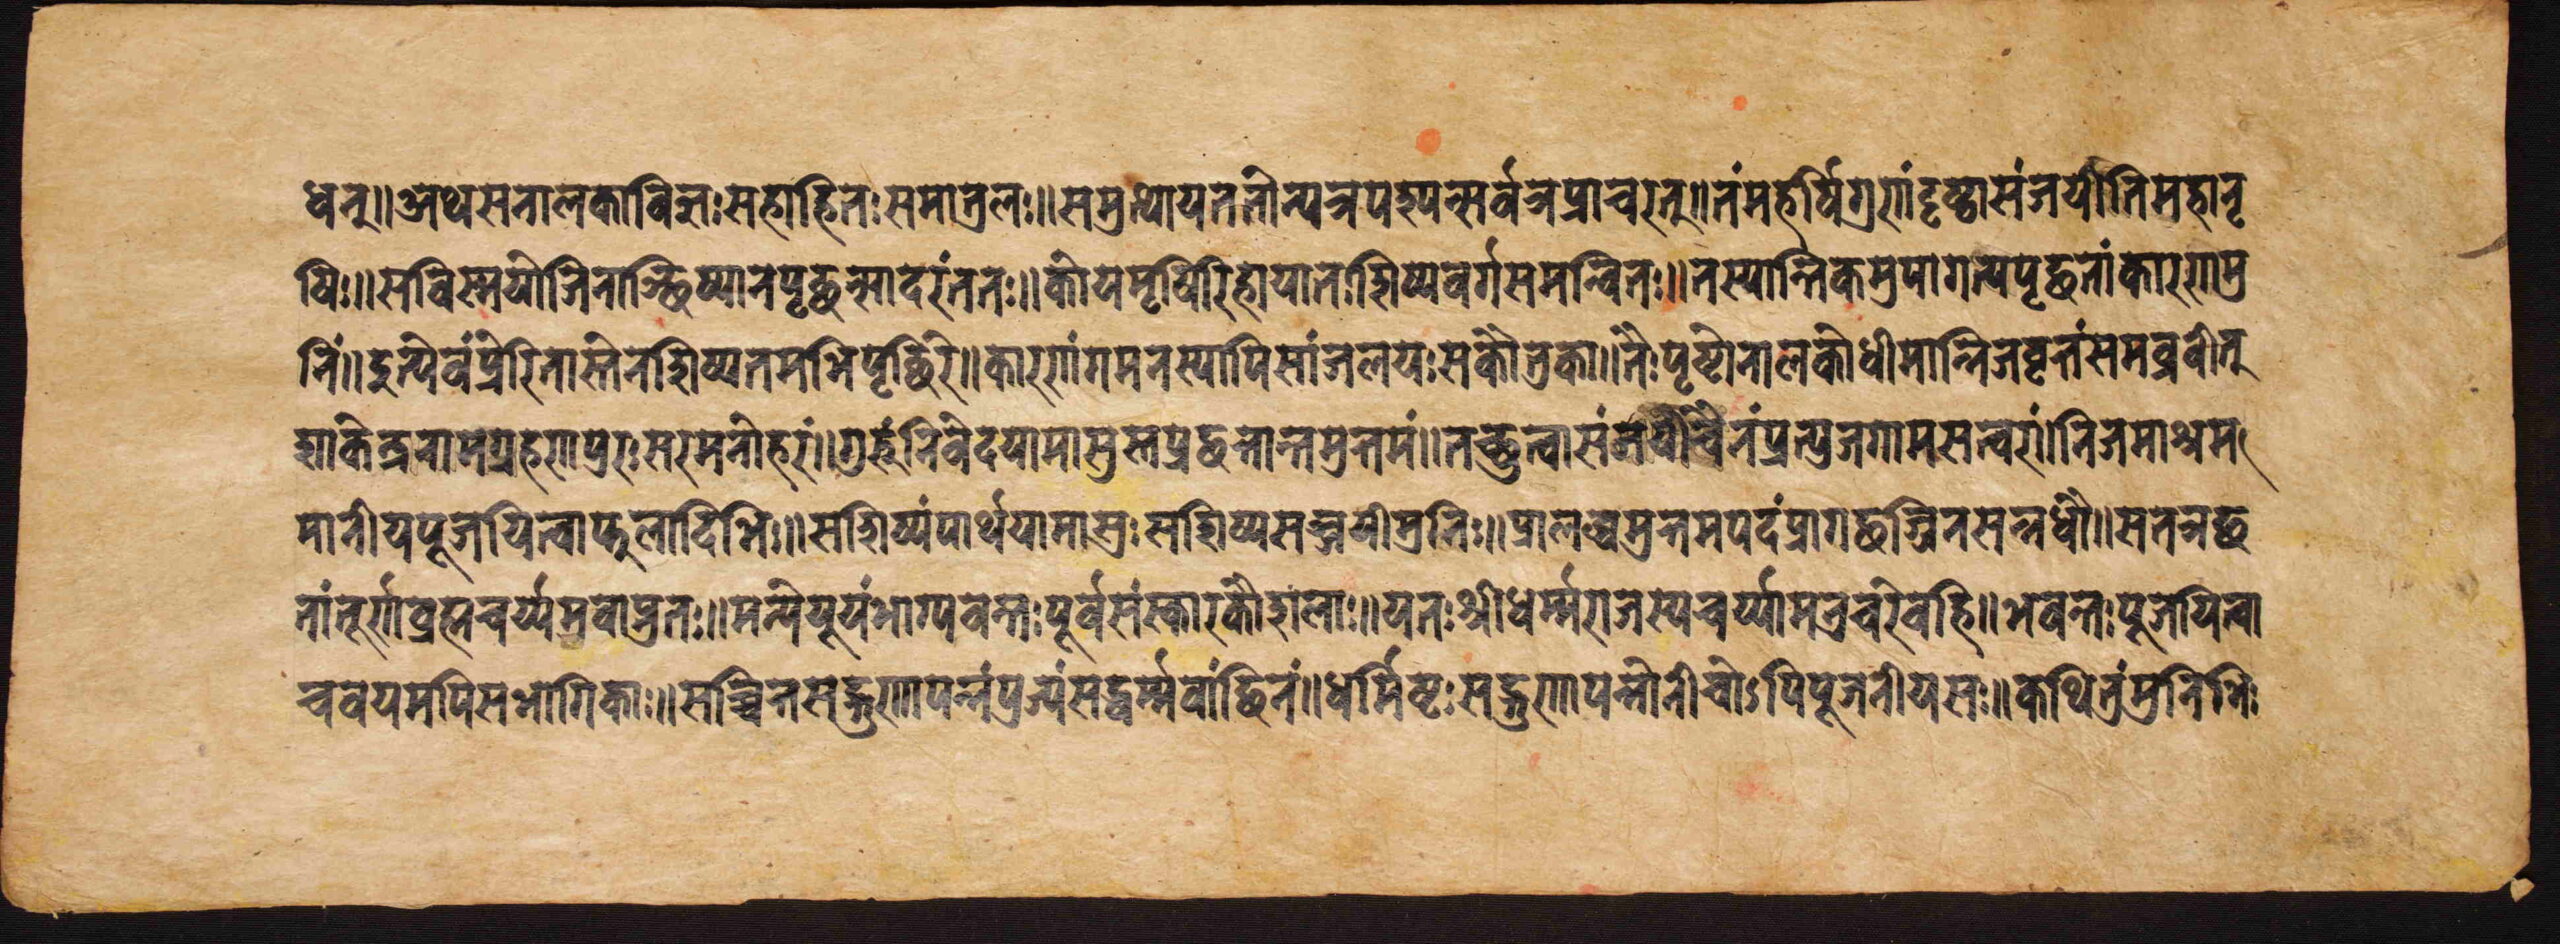 धनु॥अथसनालकाविज्ञःसहाहिनःसमातुलः॥समुत्थायततोन्यत्रपश्यन्सर्वत्रप्राचरत्॥तंमहर्षिगुरुंदृष्ट्वासंजयीतिमहानृ
षिः॥सविस्मयोजिताञ्छिष्यानपृछन्सादरंततः॥कोयमृषिरिहोयातःशिष्यवर्गसमन्वितः॥तस्यान्तिकमुपागत्यपृछतांकारणमु
निं॥इत्येवंप्रेरितास्तेनशिष्यतमभिपृछिरे॥कारणंगमनस्यापिसांजलयःसकौतुका॥तैःपृष्टोनालकोधीमान्निजवृत्तंसमब्रवीत्
शाकेन्द्रनामग्रहणपुरःसरमनोहरं॥गुरुंनिवेदयामासुस्तप्रछन्नान्तमुत्तमं॥तच्छ्रुत्वासंजयीचैनंप्रत्युजगामसत्वरं॥निजमाश्रम
मानीयपूजयित्वाप्तुलादिभिः॥सशिष्यंपार्थयामासःसशिष्यसञ्जयीमुनिः॥प्रालब्धमुत्तमपदंप्रागछज्जिनसन्नधौ॥सतन्नछ
नांतूर्णंब्रह्मचर्य्यमुवाप्नुतः॥मन्येयूयंभाग्यवन्तःपूर्वसंस्कारकौशलाः॥यतःश्रीधर्म्मराजस्यचर्य्यामनुचरेवहि॥भवन्तःपूजयित्वा
चवयमपिसभागिकाः॥सच्चितसद्गुणापन्नंप्रज्यंसद्धर्म्मवांछितं॥धर्मिष्टःसद्गुणापन्नोनीचोऽपिपूजनीयसः॥कथितुंमुनिभिः